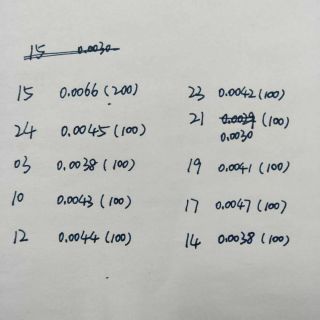 15 0.0030
15 0.0066 (200)
24 0.0045 (100)
03 0.0038 (100)
10 0.0043 (100)
12 0.0044 (100)
23 0.0042 (100)
21 0.0029 (100)
0.0030
19 0.0041 (100)
17 0.0047 (100)
14 0.0038 (100)